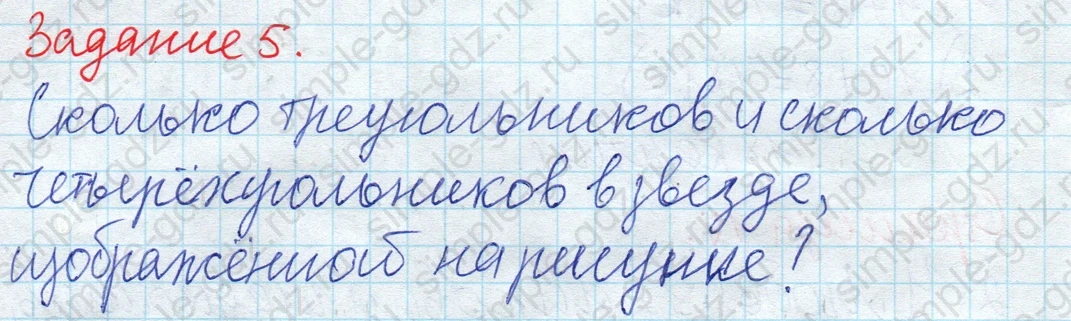 Задание 5.
Сколько треугольников и сколько
четырёхугольников в звезде,
изображённой на рисунке?